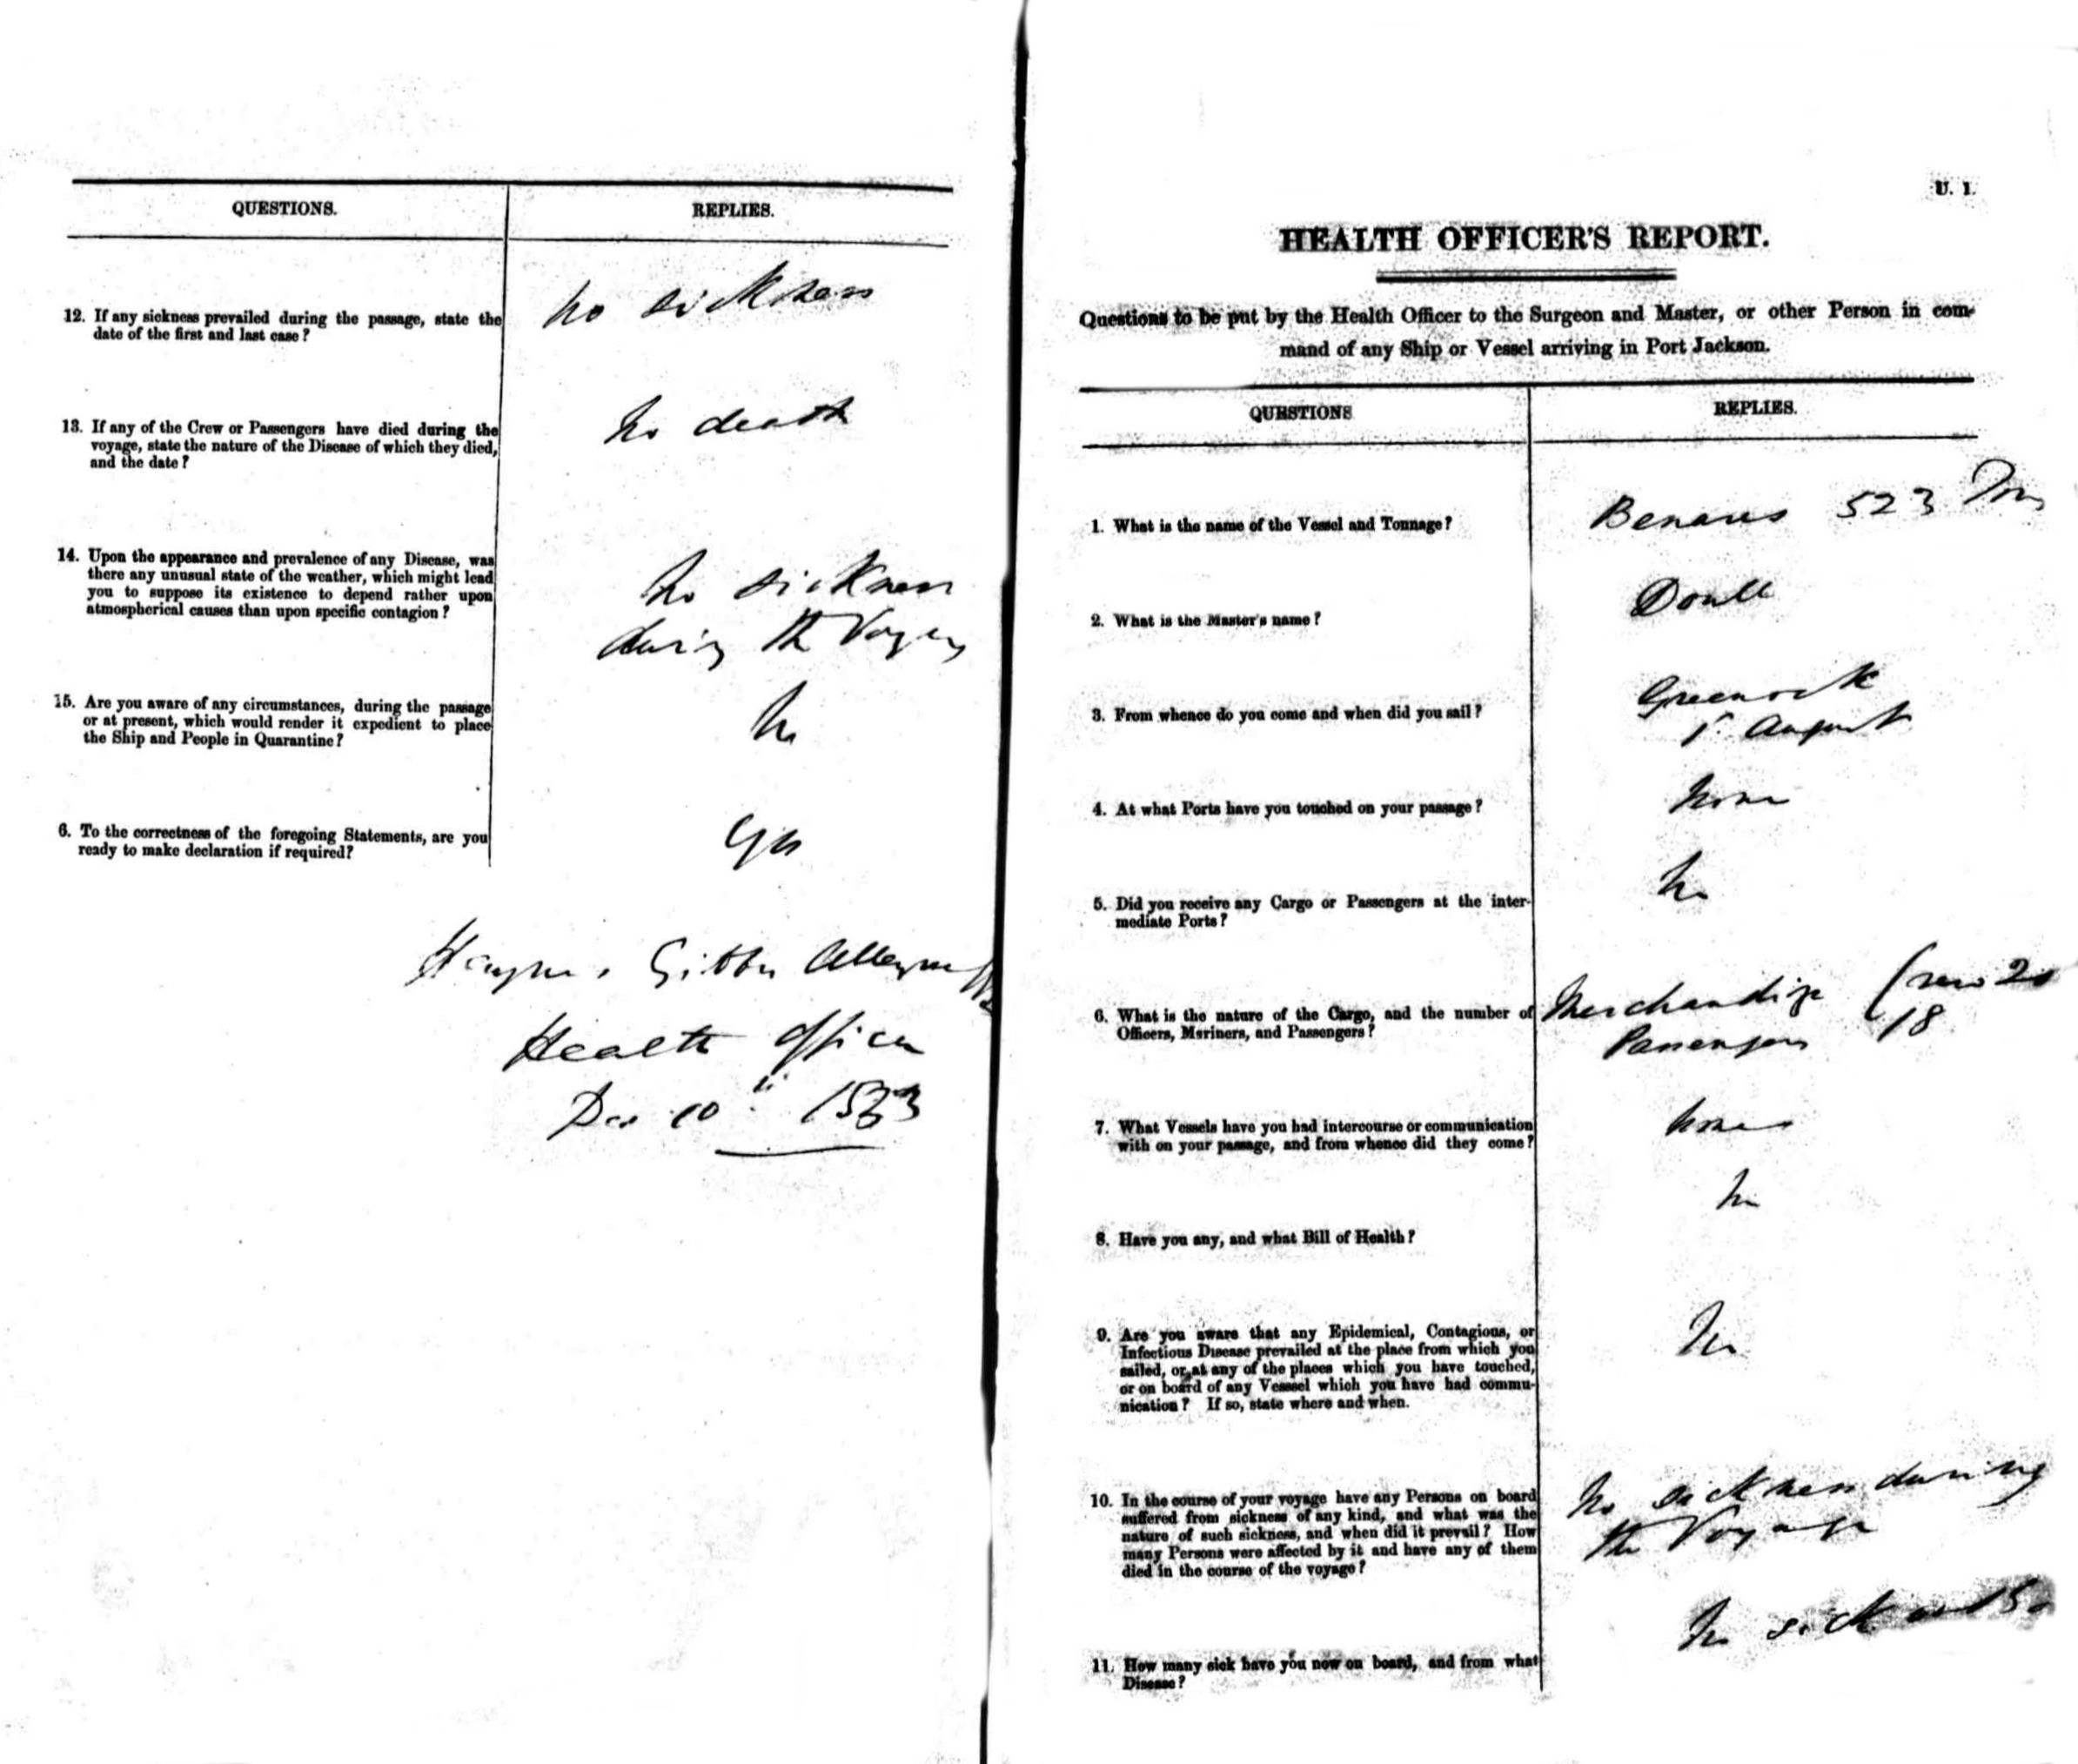 QUESTIONS.
REPLIES.
12. If any sickness prevailed during the passage, state the
date of the first and last case?
No sickness
13. If any of the Crew or Passengers have died during the
voyage, state the nature of the Disease of which they died,
and the date?
No death
14. Upon the appearance and prevalence of any Disease, was
there any unusual state of the weather, which might lead
you to suppose its existence to depend rather upon
atmospherical causes than upon specific contagion?
No sickness
during the Voyage
15. Are you aware of any circumstances, during the passage
or at present, which would render it expedient to place
the Ship and People in Quarantine?
No
6. To the correctness of the foregoing Statements, are you
ready to make declaration if required?
Yes
Haynes Gibbes Alleyne
Health Officer
Dec 10th
U. 1.
HEALTH OFFICER'S REPORT.
Questions to be put by the Health Officer to the Surgeon and Master, or other Person in com-
mand of any Ship or Vessel arriving in Port Jackson.
QUESTIONS
REPLIES.
1. What is the name of the Vessel and Tonnage?
Benares 523 Tons
2. What is the Master's name?
3. From whence do you come and when did you sail?
Greenock
1st August
4. At what Ports have you touched on your passage?
None
5. Did you receive any Cargo or Passengers at the inter-
mediate Ports?
No
6. What is the nature of the Cargo, and the number of
Officers, Mariners, and Passengers?
Merchandize Crew 20
Passengers 18
7. What Vessels have you had intercourse or communication
with on your passage, and from whence did they come?
None
8. Have you any, and what Bill of Health?
No
9. Are you aware that any Epidemical, Contagious, or
Infectious Disease prevailed at the place from which you
sailed, or at any of the places which you have touched,
or on board of any Vesssel which you have had commu-
nication? If so, state where and when.
No
10. In the course of your voyage have any Persons on board
suffered from sickness of any kind, and what was the
nature of such sickness, and when did it prevail? How
many Persons were affected by it and have any of them
died in the course of the voyage?
No sickness during
the Voyage
11. How many sick have you now on board, and from what
Disease?
No sick